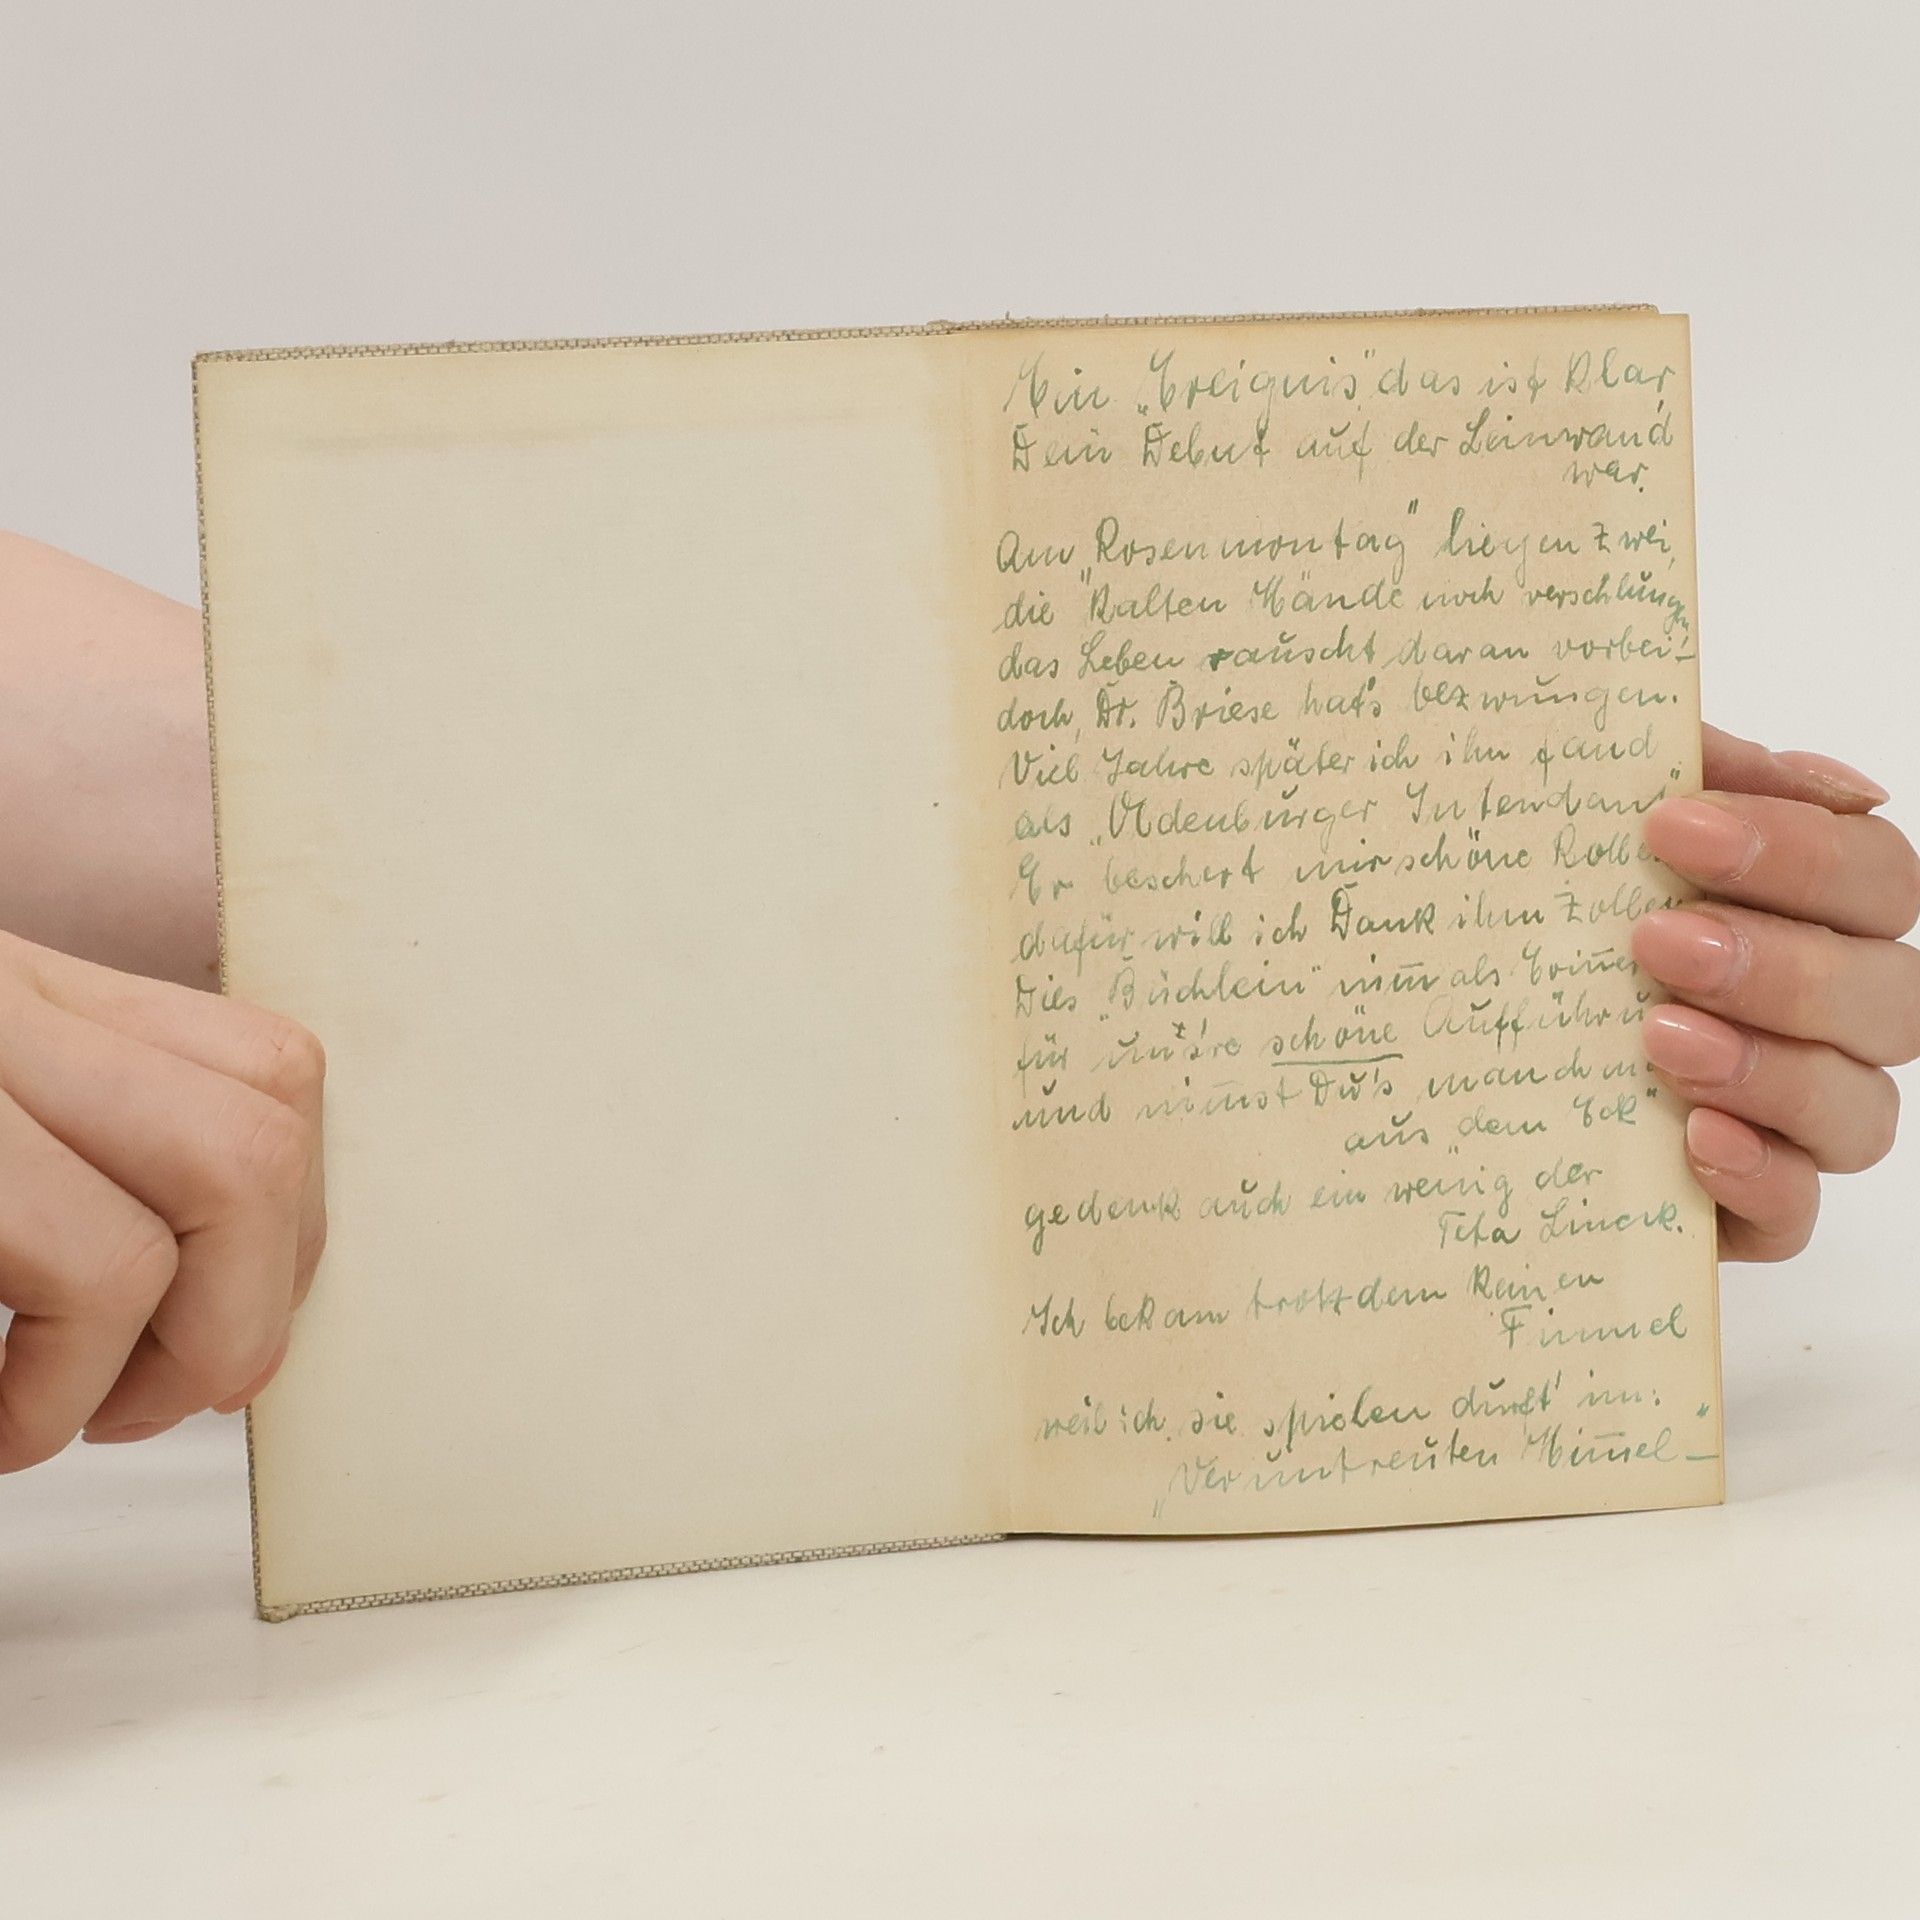 Ein „Ereignis" das ist klar,
Dein Debut auf der Leinwand
war.
Am „Rosenmontag" liegen zwei,
die kalten Hände noch verschlungen
das Leben rauscht daran vorbei! –
doch, Dr. Briese hat's bezwungen.
Viel Jahre später ich ihn fand
als „Oldenburger Intendant"
Er beschert mir schöne Rollen
dafür will ich Dank ihm zollen
Dies „Büchlein" nim̅ als
für uns're schöne
und nim̅st Du's
aus „dem Eck"
gedenk auch ein wenig der
Teta Linerk.
Ich bekam trotzdem keinen
Fimmel
weil ich sie spielen durft' im:
„Veruntreuten Him̅el" –